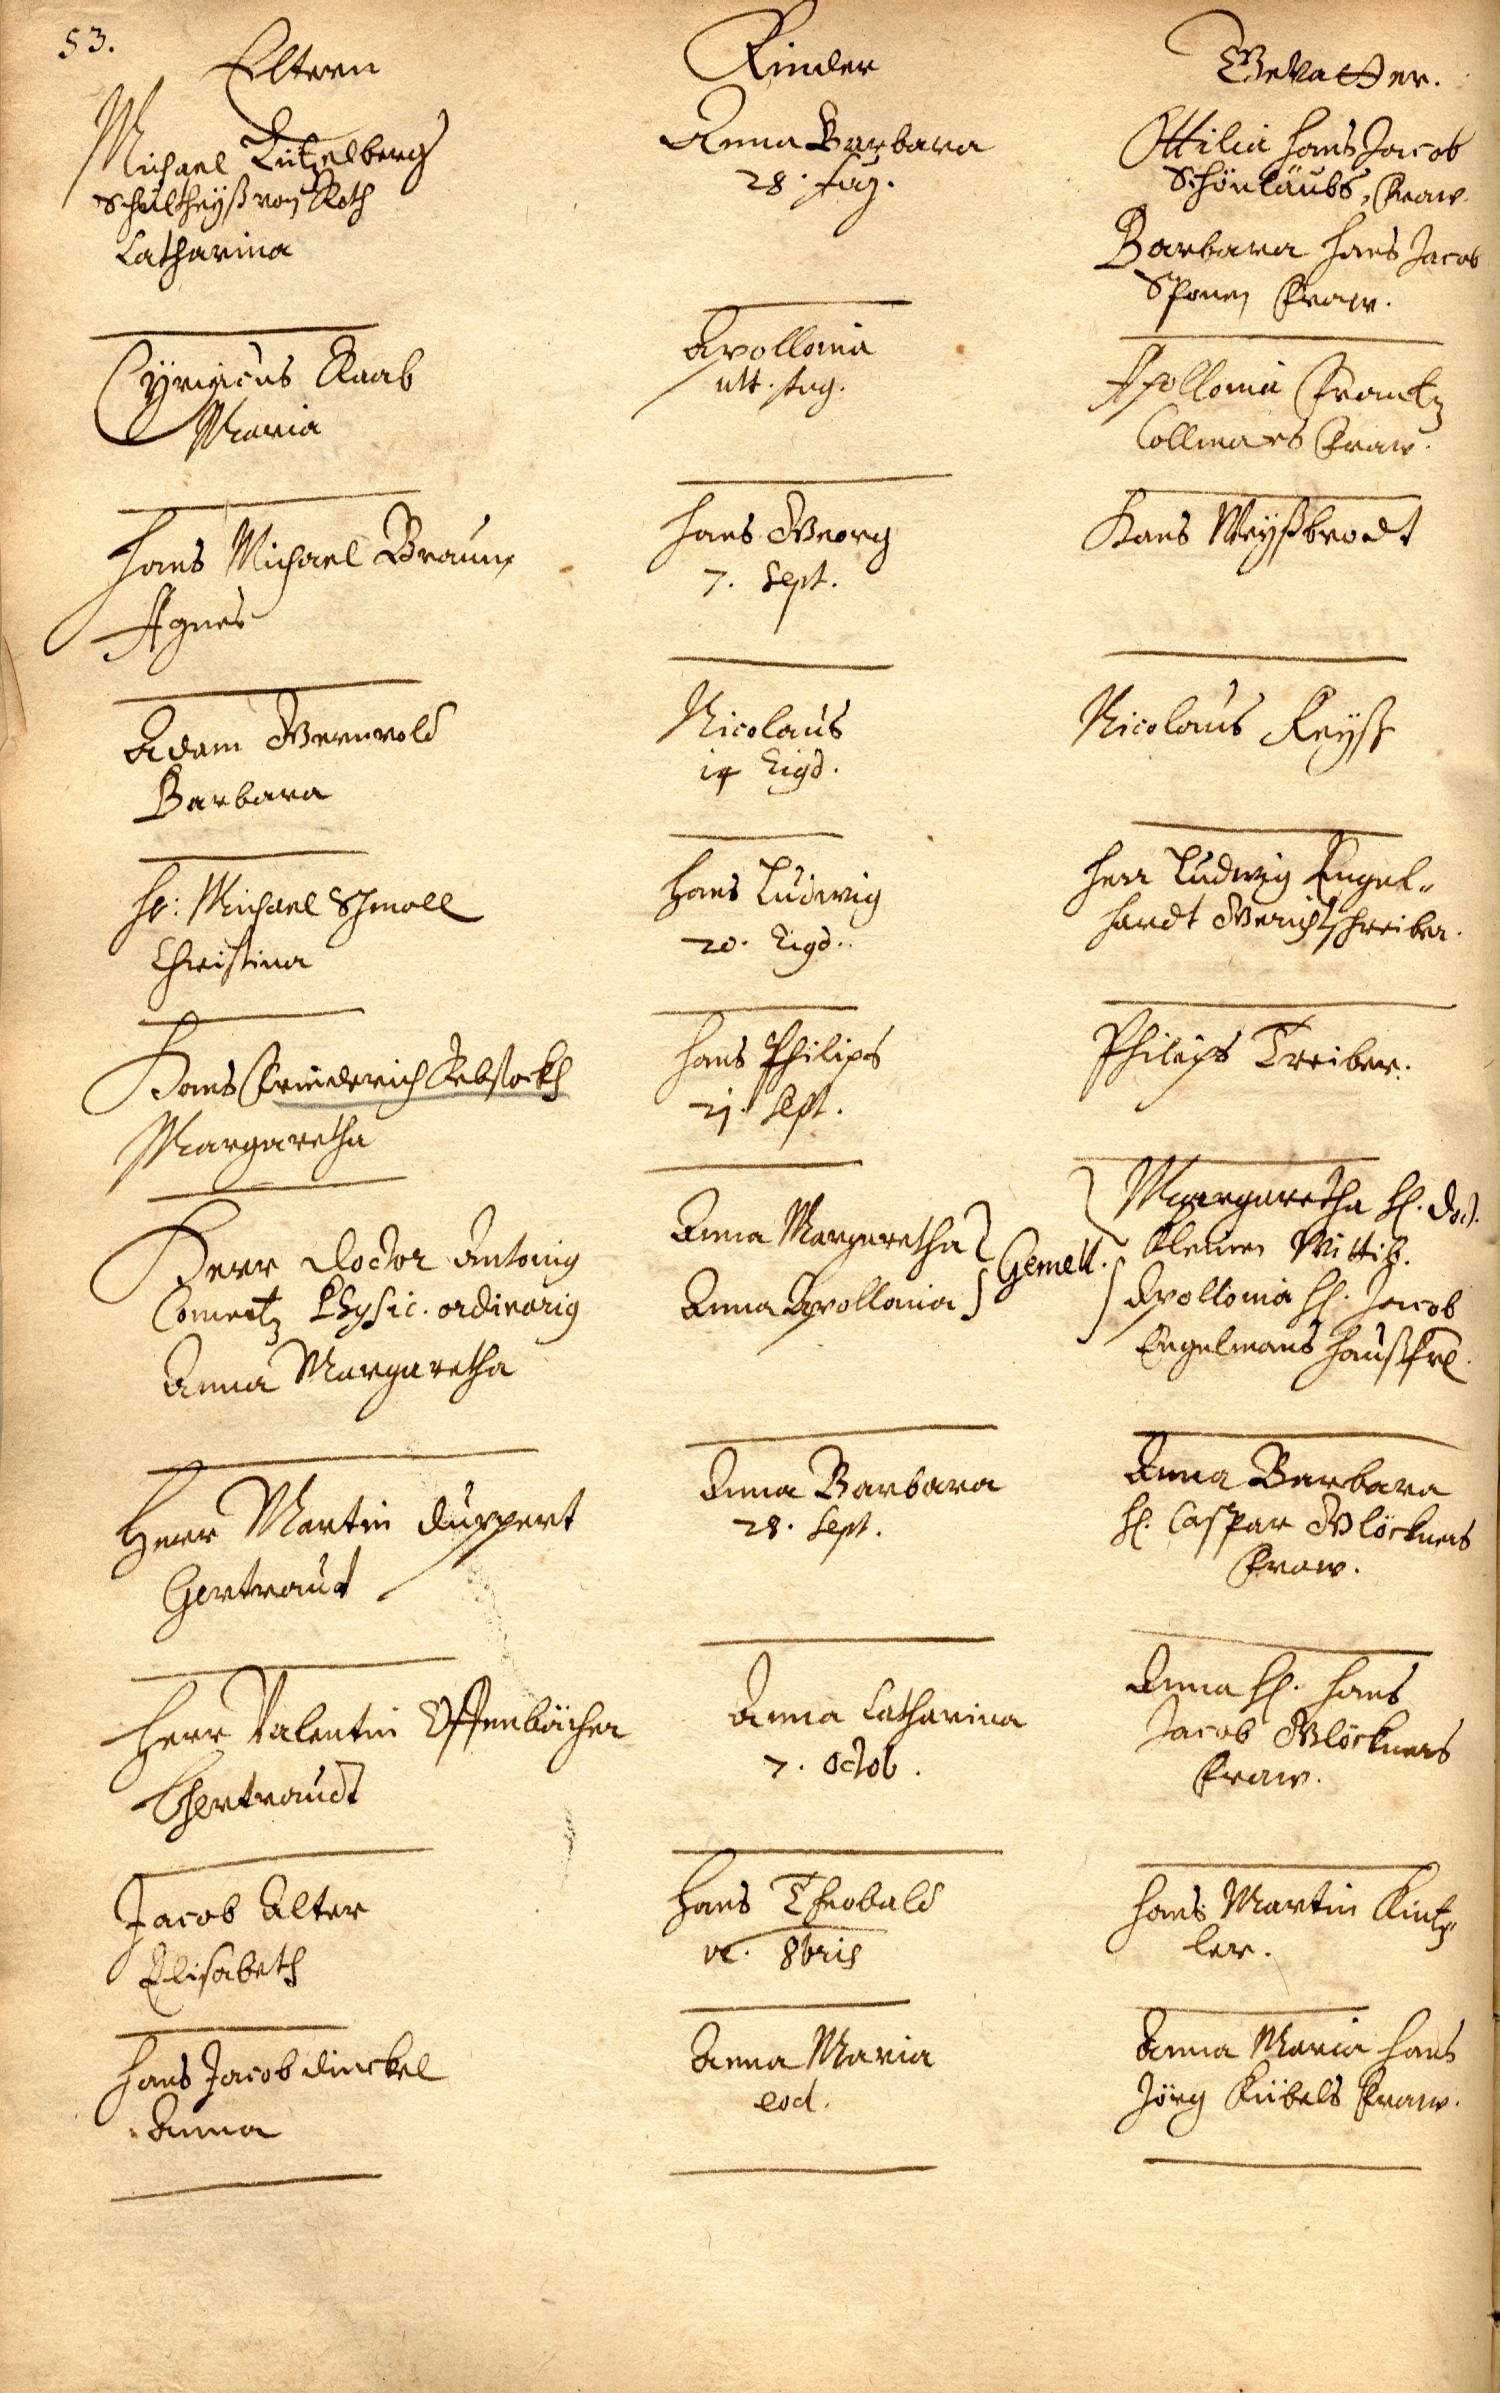 53.
Eltern
Kinder
Gevatter.
Michael Lützelberg
Schultheyß von Roth
Catharina
Anna Barbara
28. Aug.
Ottilia Hans Jacob
Schönläubs, Fraw.
Barbara Hans Jacob
Sponen Fraw.
Cÿriacus Raab
Maria
Apollonia
ult. Aug.
Apollonia Frantz
Collmars Fraw.
Hans Michael Braun
Agnes
Hans Georg
7. Sept.
Hans Weyßbrodt
Adam Gernwold
Barbara
Nicolaus
14 Eigd.
Nicolaus Reyß
Hr: Michael Schmoll
Christina
Hans Ludwig
20. Eigd.
Herr Ludwig Engel-
hardt Gerichtschreiber.
Hans Friederich Rebstockh
Margaretha
Hans Philips
21. Sept.
Philips Treiber.
Herr Doctor Antonig
Conertz Physic. ordinarig
Anna Margaretha
Anna Margaretha
Anna Apollonia
Gemell.
Margaretha H. Doct.
Kleinen Wittib.
Apollonia H. Jacob
Engelmans Haußfr.
Herr Martin Duppert
Gertraut
Anna Barbara
28. Sept.
Anna Barbara
H. Caspar Glöckners
Fraw.
Herr Valentin Offenbächer
Ghertraudt
Anna Catharina
7. Octob.
Anna H. Hans
Jacob Glöckners
Fraw.
Jacob Alter
Elisabeth
Hans Theobald
8bris
Hans Martin Kintz-
ler.
Hans Jacob Dinckel
Anna
Anna Maria
eod.
Anna Maria Hans
Jörg Kübels Fraw.